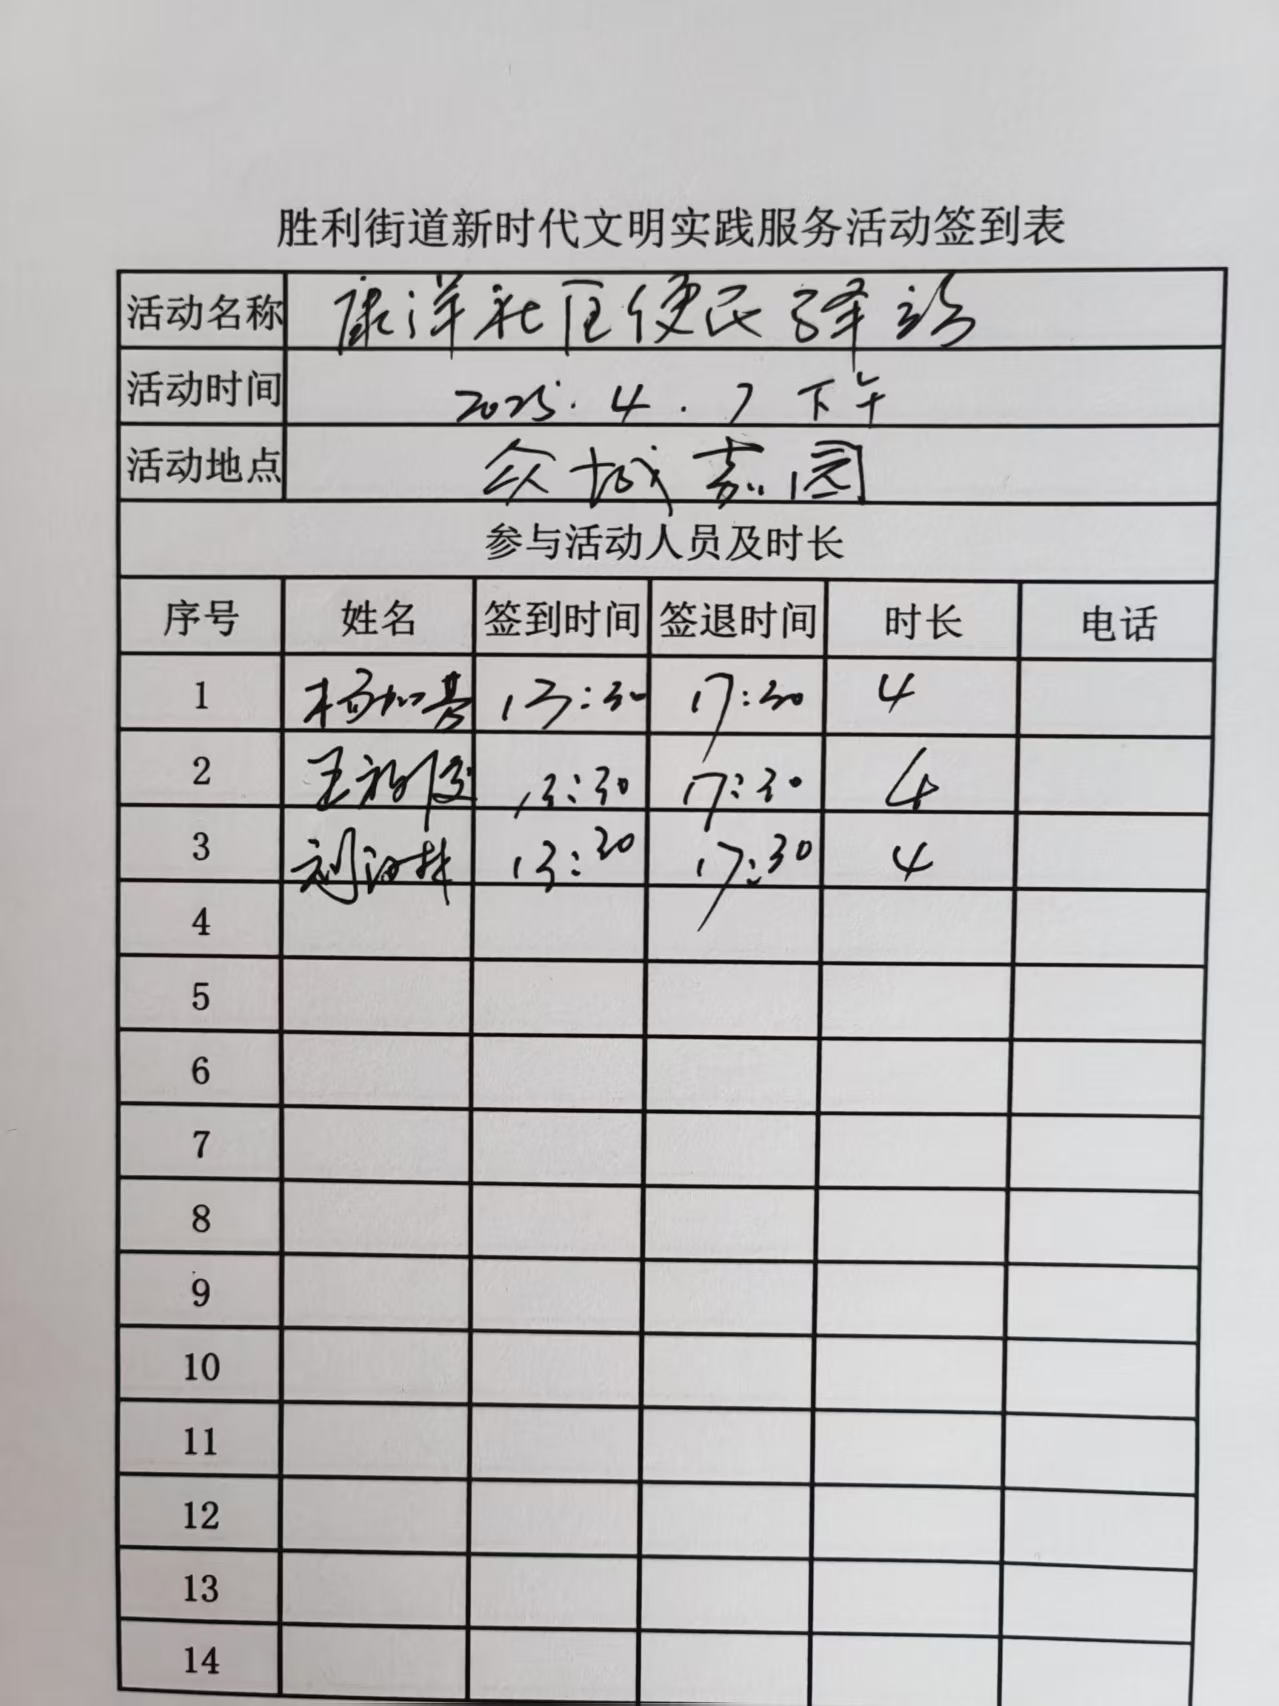 胜利街道新时代文明实践服务活动签到表
活动名称 康洋社区便民驿站
活动时间 2025.4.7 下午
活动地点 众城嘉园
参与活动人员及时长
序号 姓名 签到时间 签退时间 时长 电话
1 杨 13:30 17:30 4
2 王 13:30 17:30 4
3 刘 林 13:30 17:30 4
4
5
6
7
8
9
10
11
12
13
14